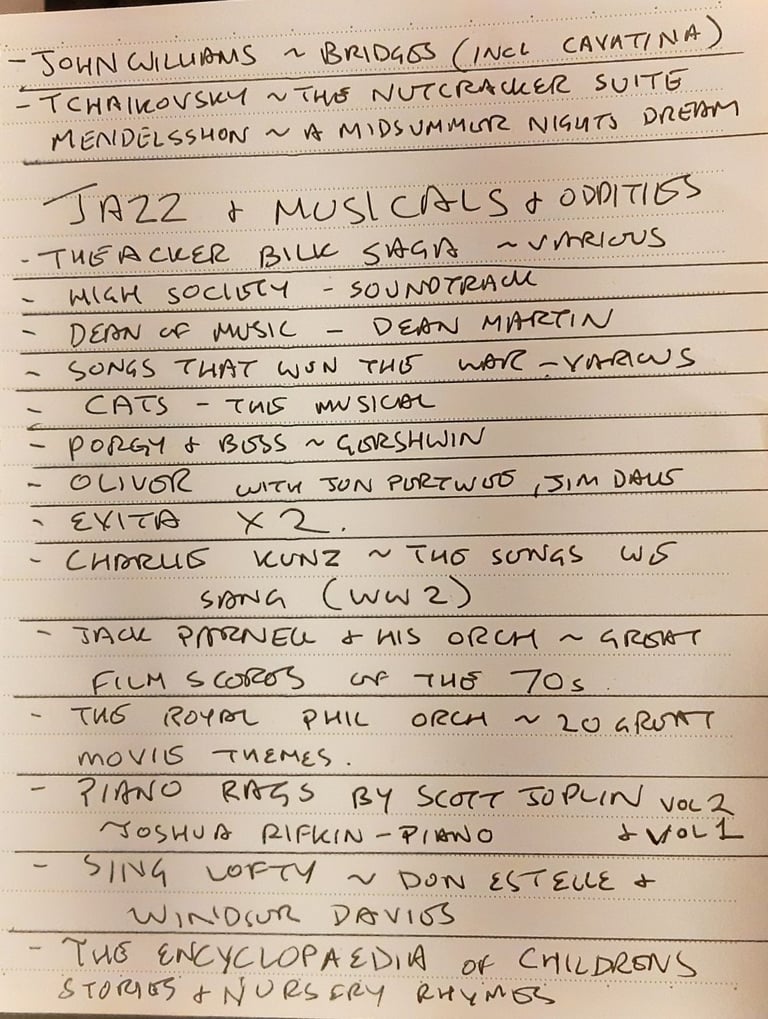 - JOHN WILLIAMS ~ BRIDGES (INCL CAVATINA)
- TCHAIKOVSKY ~ THE NUTCRACKER SUITE
MENDELSSHON ~ A MIDSUMMER NIGHTS DREAM
JAZZ & MUSICALS & ODDITIES
- THE ACKER BILK SAGA ~ VARIOUS
- HIGH SOCIETY - SOUNDTRACK
- DEAN OF MUSIC - DEAN MARTIN
- SONGS THAT WON THE WAR - VARIOUS
- CATS - THE MUSICAL
- PORGY & BESS ~ GERSHWIN
- OLIVER WITH JON PERTWEE, JIM DALE
- EVITA X 2.
- CHARLIE KUNZ ~ THE SONGS WE
SANG (WW2)
- JACK PARNELL & HIS ORCH ~ GREAT
FILM SCORES OF THE 70s
- THE ROYAL PHIL ORCH ~ 20 GREAT
MOVIE THEMES.
- PIANO RAGS BY SCOTT JOPLIN VOL 2
~ JOSHUA RIFKIN - PIANO & VOL 1
- SING LOFTY ~ DON ESTELLE &
WINDSOR DAVIES
- THE ENCYCLOPAEDIA OF CHILDRENS
STORIES & NURSERY RHYMES